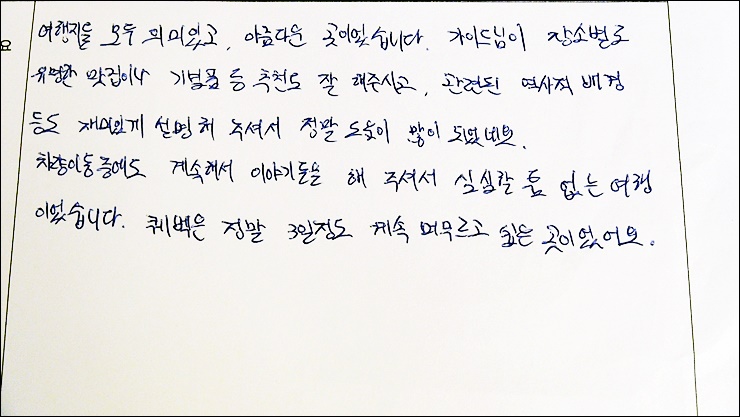 여행지들 모두 의미있고, 아름다운 곳이었습니다. 가이드님이 장소별로
유명한 맛집이나 기념품 등 추천도 잘 해주시고, 관련된 역사적 배경
등도 재미있게 설명해 주셔서 정말 도움이 많이 되었네요.
차량이동중에도 계속해서 이야기들을 해 주셔서 심심할 틈 없는 여행
이었습니다. 퀘벡은 정말 3일정도 계속 머무르고 싶은 곳이었어요.
요